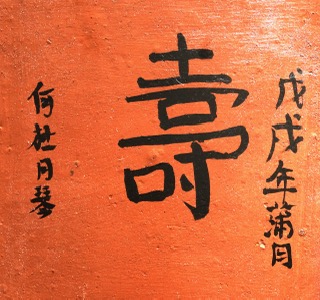 戊戌年蒲月
壽
何杜月琴